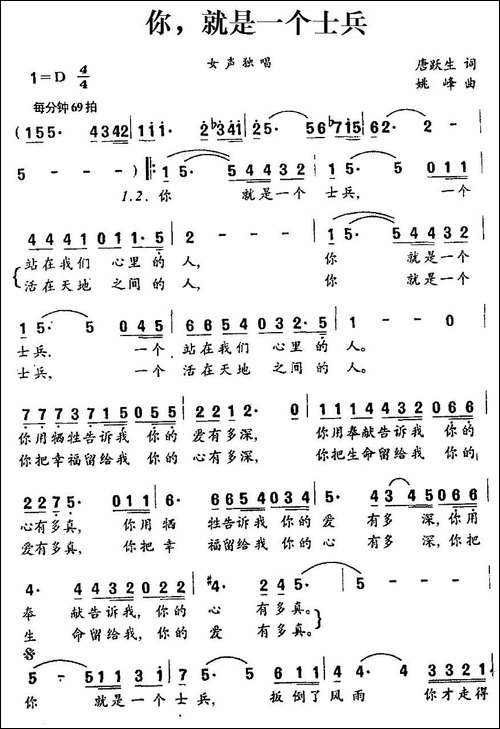 你，就是一个士兵
女声独唱
1=D 4/4
唐跃生 词
姚峰 曲
每分钟69拍
(155· 4342 | 111· 2♭341 | 25· 56♭715 | 62· 2 - |
5 - - - ) ‖: 1 5· 54432 | 15· 5 011 |
1.2.你 就是一个 士兵， 一个
4441011·5 | 2 - - - | 1 5· 54432 |
站在我们 心里的人， 你 就是一个
活在天地 之间的人， 你 就是一个
15· 5 045 | 6654032·5 | 1 - - 0 |
士兵， 一个 站在我们 心里的人。
士兵， 一个 活在天地 之间的人。
77737715055 | 2212· 0 | 1114432066 |
你用牺牲告诉我 你的 爱有多深， 你用奉献告诉我 你的
你把幸福留给我 你的 心有多深， 你把生命留给我 你的
2275· 011 | 6· 6654034 | 5· 4345066 |
心有多真， 你用牺 牲告诉我 你的爱 有多深，你用
爱有多真， 你把幸 福留给我 你的心 有多深，你把
4· 4432022 | #4· 245· | 5 - - - |
奉 献告诉我，你的心 有多真。
生 命留给我，你的爱 有多真。
5 - 511 3 i | 7·5· 5 611 | 4 4 3321· |
你 就是一个士兵， 扳倒了风雨 你才走得